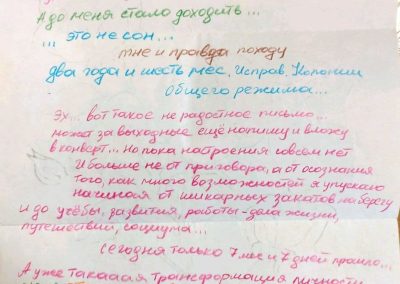 А до меня стало доходить...
... это не сон...
мне и правда походу
два года и шесть мес. Исправ. Колонии
общего режима...
Эх... вот такое не радостное письмо...
может за выходные ещё напишу и вложу
в конверт... Но пока настроения совсем нет
И больше не от приговора, а от осознания
того, как много возможностей я упускаю
начиная от шикарных закатов на берегу
и до учёбы, развития, работы-дела жизни,
путешествий, социума...
Сегодня только 7 мес и 7 дней прошло...
А уже такаааая трансформация личности